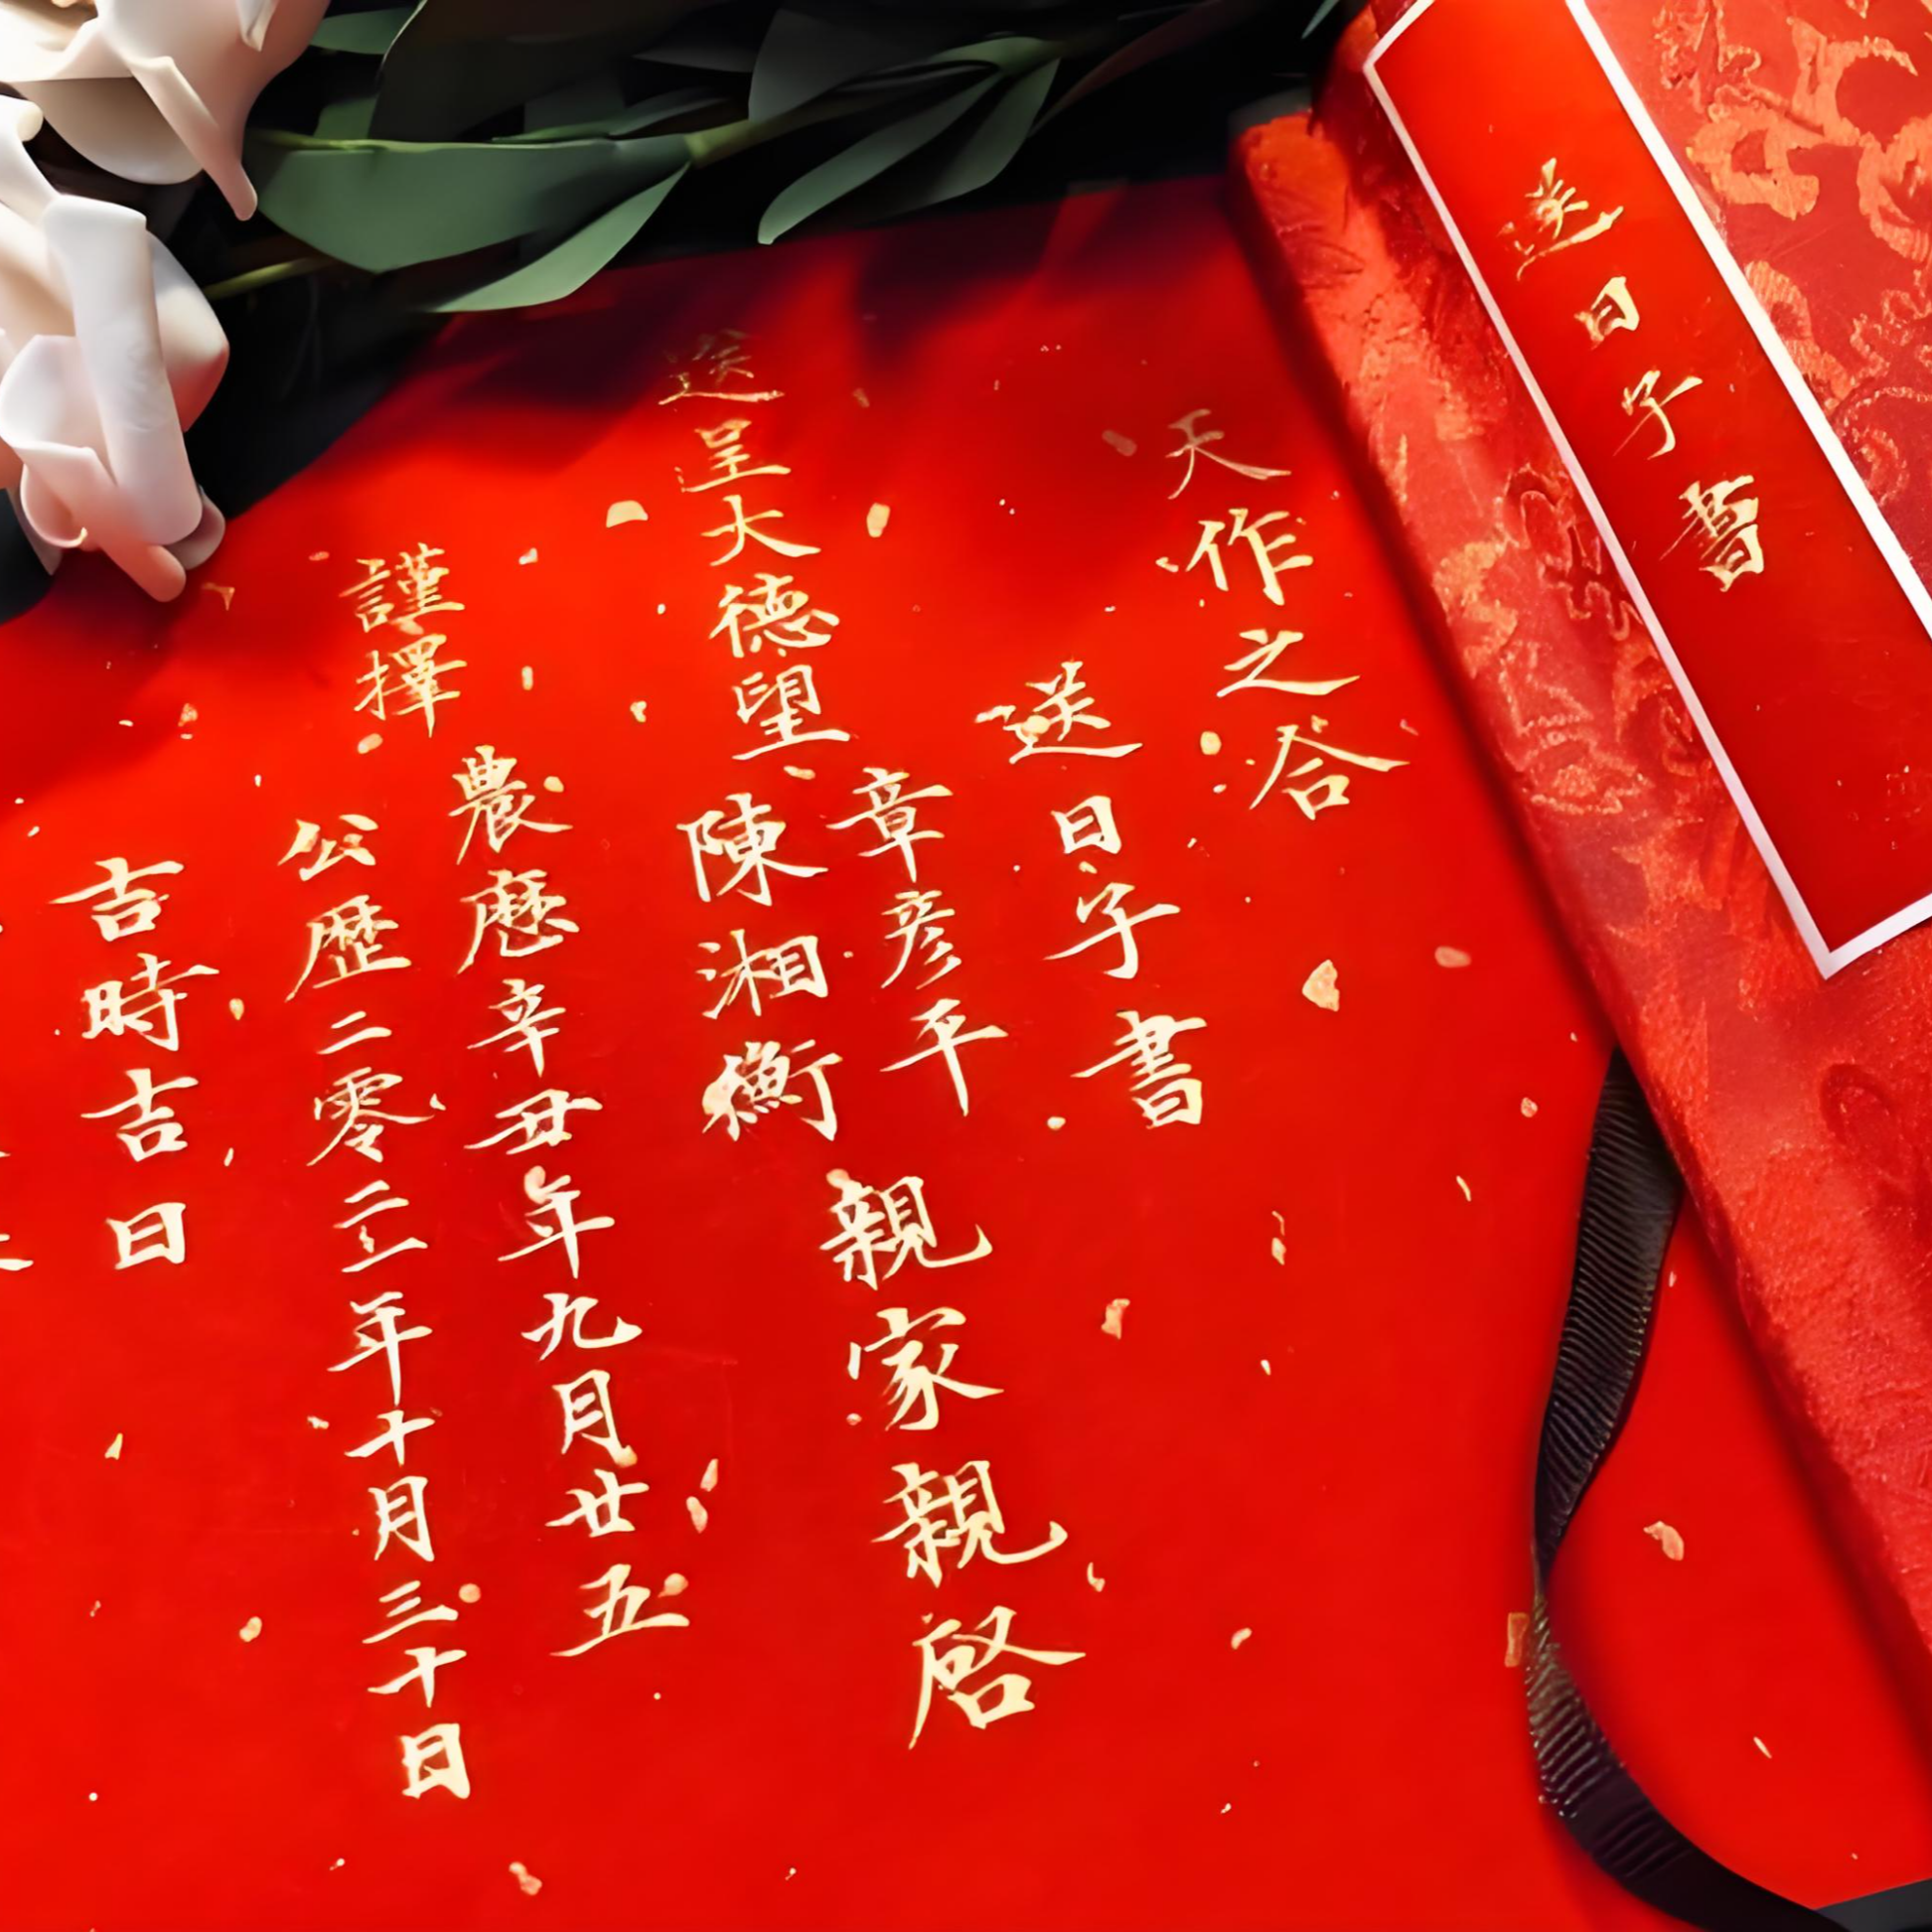 送日子書
天作之合
送日子書
送呈大德望
章彥平
陳湘衡
親家親啓
謹擇
農曆辛丑年九月廿五
公歴二零二一年十月三十日
吉時吉日